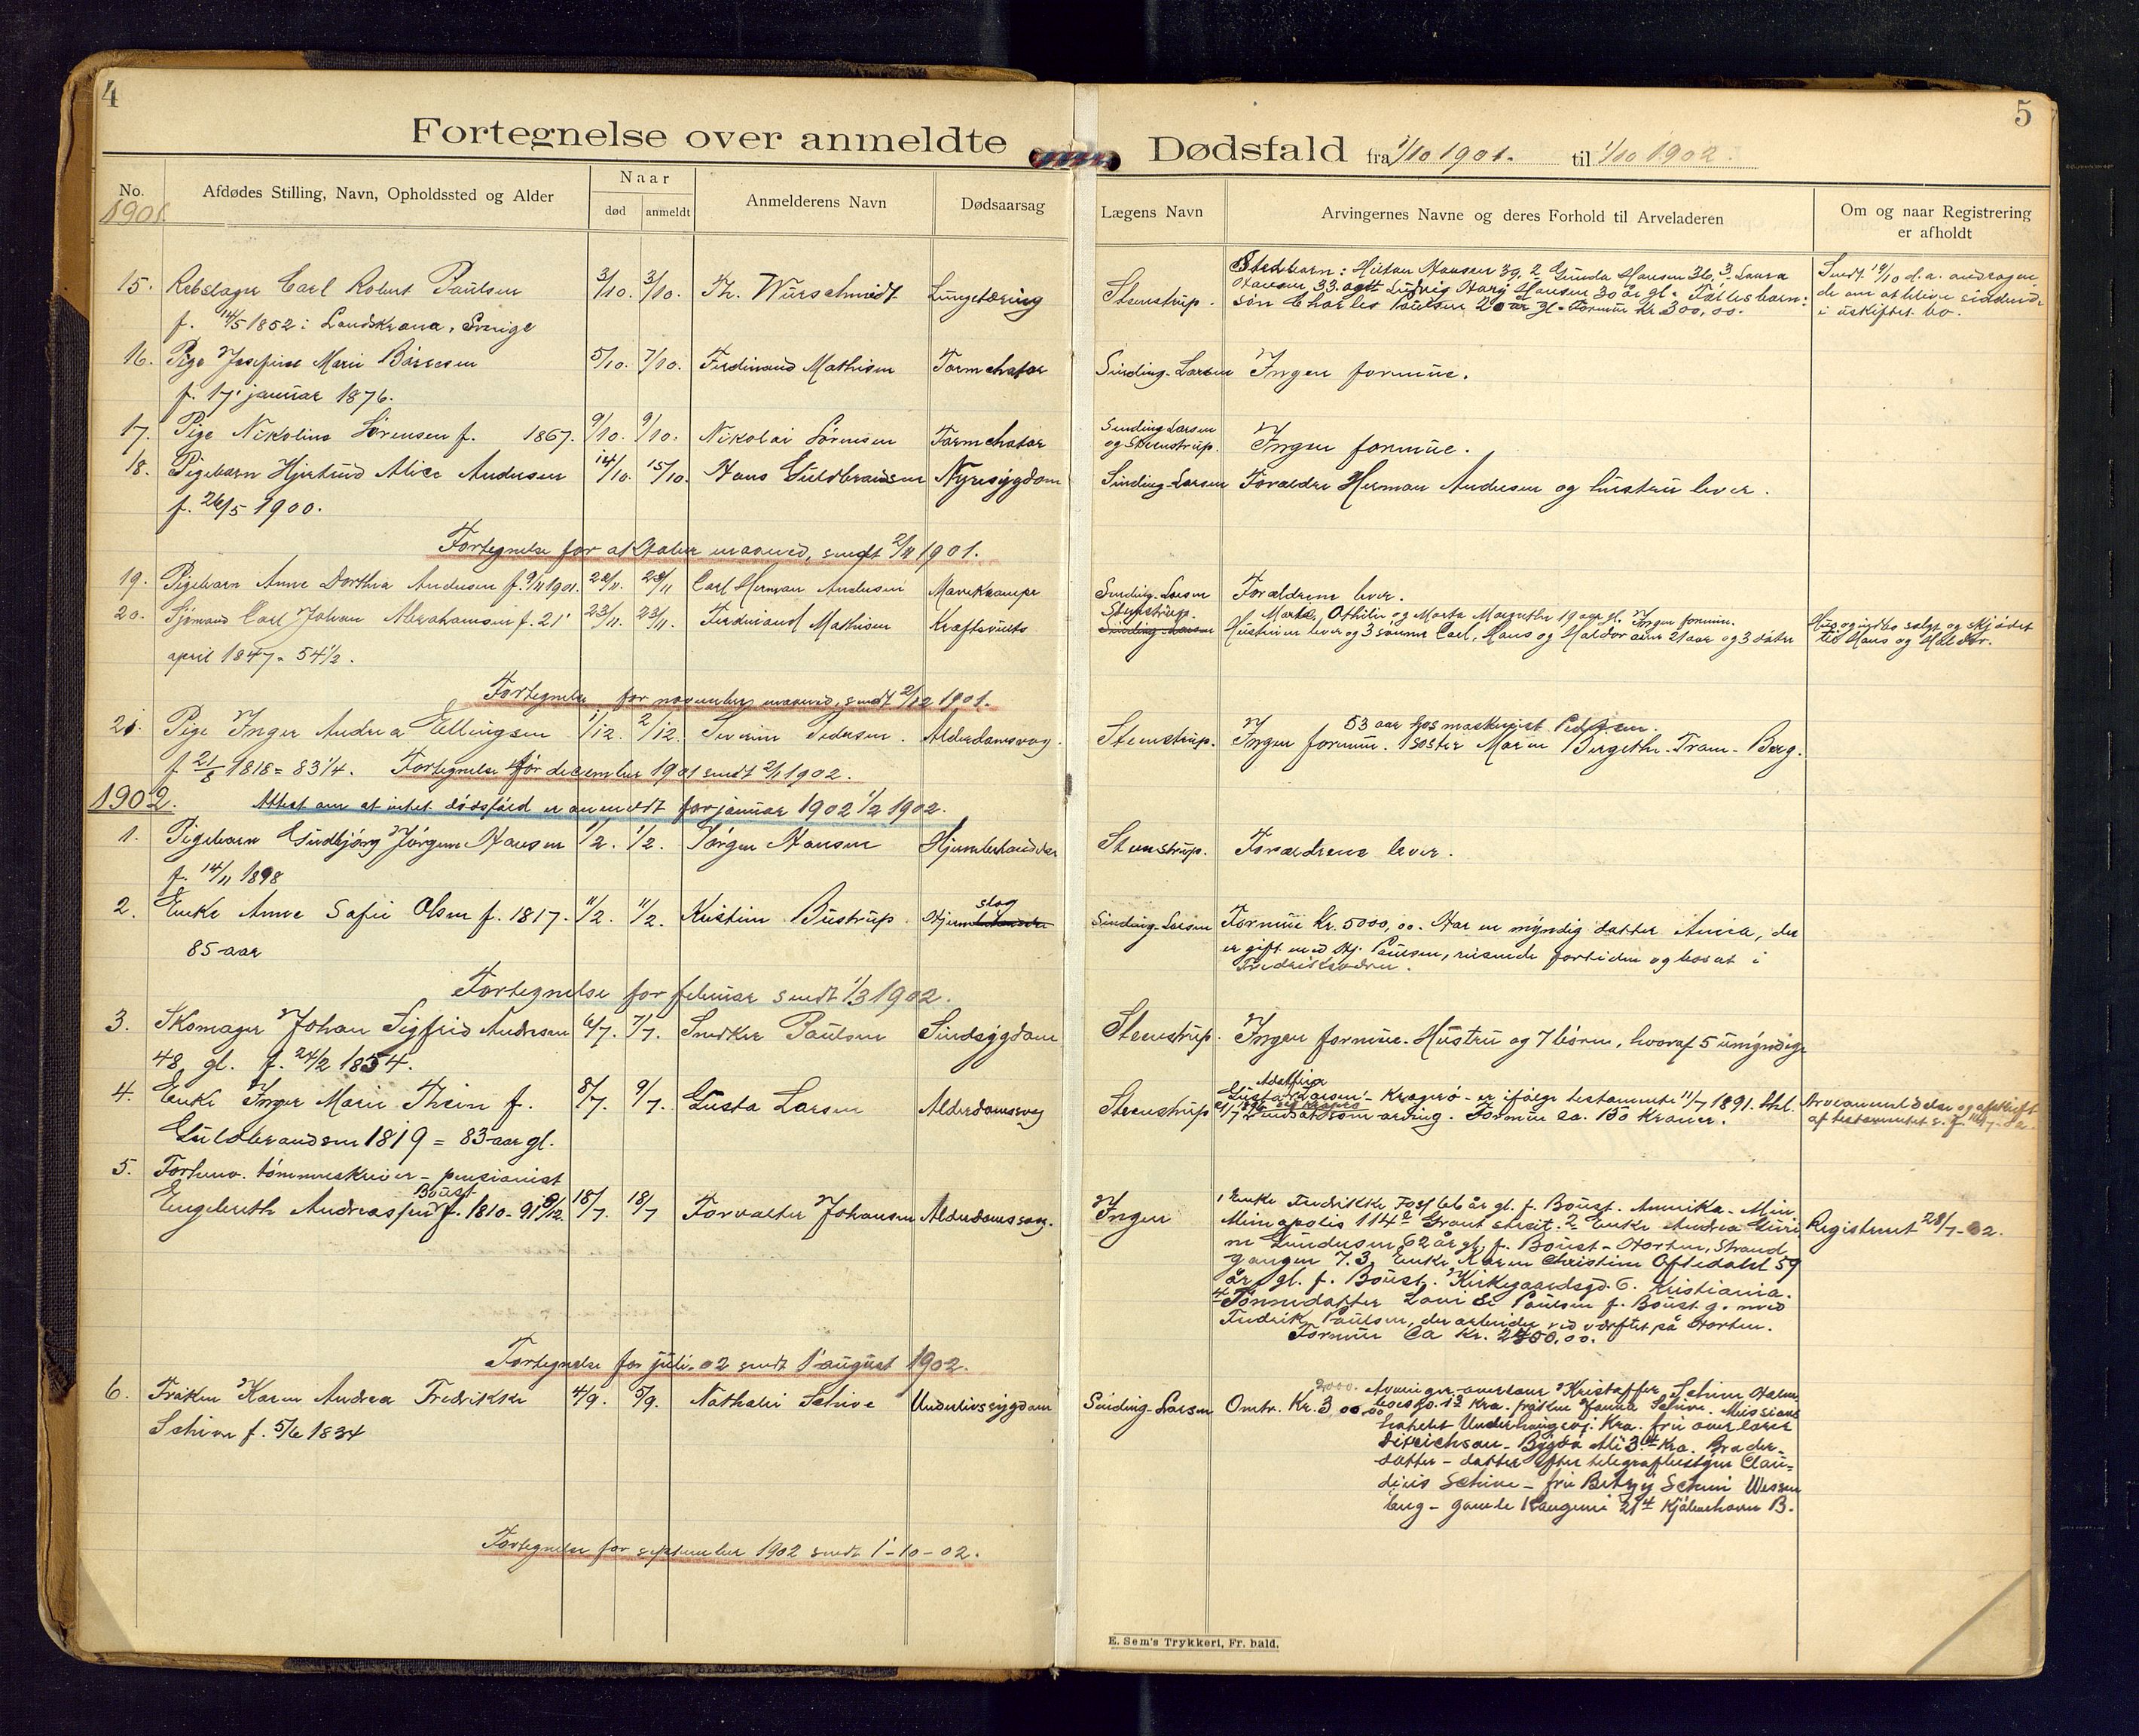 4
5
Fortegnelse over anmeldte Dødsfald fra 1/10 1901. til 1/10 1902.
No.
1901
Afdødes Stilling, Navn, Opholdssted og Alder
Naar
død
anmeldt
Anmelderens Navn
Dødsaarsag
Lægens Navn
Arvingernes Navne og deres Forhold til Arveladeren
Om og naar Registrering
er afholdt
15. Rebslager Carl Robert Paulsen 3/10. 3/10. Th. Würschmidt Lungetæring Stenstrup.
f. 14/5 1852 i Landskrona, Sverige
Stedbarn: Hansen 39, 2 Gunda Hansen 36, 3 Laura
Hansen 33 og Ludvig Hansen 30 år gl. Fællesbarn:
søn Charles Paulsen 20 år gl. Formue Kr. 300,00.
Sendt 14/10 d.a. andragen-
de om at blive siddende
i uskiftet bo.
16. Pige Josefine Marie 5/10. 7/10. Ferdinand Mathisen Tarmchatar Sinding-Larsen Ingen formue.
f. 17 januar 1876.
17. Pige Nikoline Sørensen f. 1867. 9/10. 9/10. Nikolai Sørensen Tarmchatar Sinding-Larsen
og Stenstrup. Ingen formue.
18. Pigebarn Hjertrud Alice Andersen 14/10. 15/10. Hans Guldbrandsen Nyresygdom Sinding-Larsen Forældre Herman Andersen og hustru lever.
f. 26/5 1900.
Fortegnelse for oktober maaned, sendt 2/11 1901.
19. Pigebarn Anne Dorthea Andersen f. 9/11 1901. 22/11. 23/11 Carl Herman Andersen Mavekrampe Sinding-Larsen Forældrene lever.
20. Sjømand Carl Johan Abrahamsen f. 21 23/11. 23/11. Ferdinand Mathisen Kræft Stenstrup.
Sinding-Larsen
april 1847 = 54 1/2.
Marta, Othilie og Marta Margrethe 19 aar gl. Ingen formue.
Hustruen lever og 3 sønner Carl, Hans og Haldor 21 aar og 3 døtre
Hus og solgt og skjødet
til Hans og Haldor.
Fortegnelse for november maaned, sendt 2/12 1901.
21. Pige Inger Andrea Ellingsen 1/12. 2/12. Severin Pedersen. Alderdomsvag. Stenstrup.
53 aar hos maskinist Pedersen.
Ingen formue. 1 søster Maren Bergethe Tram-Berg.
f. 21/8 1818 = 83 1/4. Fortegnelse for december 1901 sendt 2/1 1902.
1902. Attest om at intet dødsfald er anmeldt for januar 1902 1/2 1902.
1. Pigebarn Gudbjørg Jørgine Hansen 1/2. 1/2. Jørgen Hansen Stenstrup. Forældrene lever.
f. 14/11 1898
2. Enke Anne Sofie Olsen f. 1817. 11/2. 11/2. Kristine Bustrup. Hjerneslag Sinding-Larsen Formue Kr. 5000,00. Har en myndig datter Anna, der
85 aar
er gift med Hj. Paulsen, reisende fortiden og bosat i
Fredrikshavn.
Fortegnelse for februar sendt 1/3 1902.
3. Skomager Johan Sigfrid Andersen 6/7. 7/7. Snedker Paulsen Sindsygdom Stenstrup. Ingen formue. Hustru og 7 børn, hvoraf 5 umyndige
48 gl. f. 24/2 1854.
4. Enke Inger Marie Thein f. 8/7. 9/7. Gusta Larsen Alderdomsvag Stenstrup
Guldbrandsen 1819 = 83 aar gl.
Adolfine
Gusta Larsen - Kragerø - er ifølge testamente 11/7 1891. thl.
som arving. Formue ca. 150 kroner.
Arveanmeldelse og afskrift
af testamentet
5. Forhenv. tømmerskriver - pensionist
Engebreth Andreassen Boust f. 1810. 91 9/12. 18/7. 18/7 Forvalter Johansen Alderdomssvag. Ingen
1 Enke Fredrikke Foss 66 år gl. f. Boust. Amerika - Min.
Minapolis 114 2 Grant street. 2 Enke Andrea
Gundersen 62 år gl. f. Boust - Horten, Strand
gangen 7. 3 Enke Karen Christine Oftedahl 59
år gl. f. Boust. Kirkegaardsgd. 6. Kristiania.
4 Sønnedatter Lovise Paulsen f. Boust g. med
Fredrik Paulsen, der arbeider ved værftet på Horten.
Formue Ca Kr. 2400,00.
Registreret 28/7-02.
Fortegnelse for juli-02 sendt 1 august 1902.
6. Frøken Karen Andrea Fredrikke 4/9. 5/9. Nathalie Schive Underlivssygdom Sinding-Larsen Omtr. Kr. 3000,00
Schive f. 5/6 1834
2000. Arvinger overlærer Kristoffer Schive
Kra. frøken Hanna Schive. Missions
fru overlærer
Ditrichson - Bygdø Alle 3 Kra. Broder-
datter - datter efter telegrafbestyrer Clau-
dius Schive - fru Betzy Schive Wessen
berg - gamle Kongevei 21 Kjøbenhavn B.
Fortegnelse for september 1902 sendt 1-10-02.
E. Sem's Trykkeri, Fr. hald.